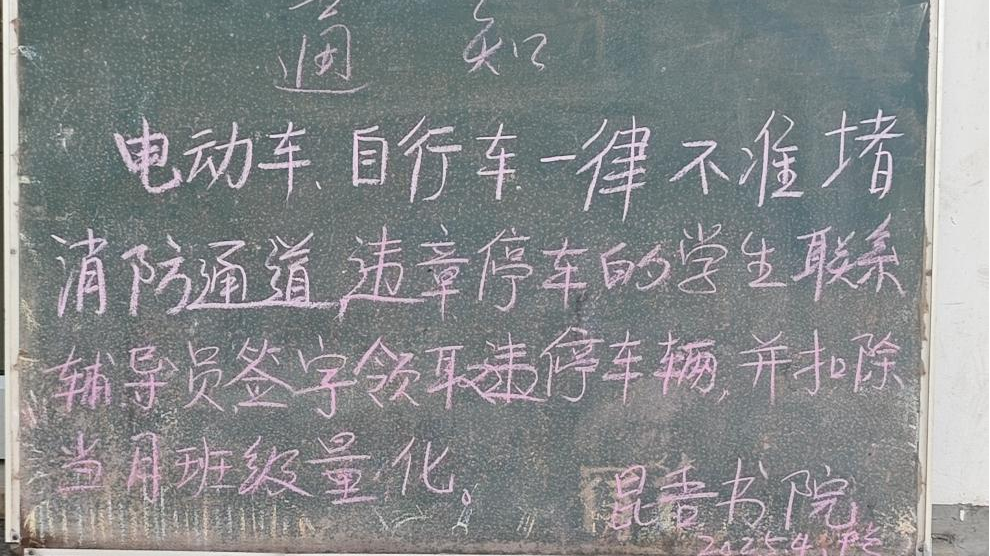 通知
电动车、自行车一律不准堵
消防通道,违章停车的学生联系
辅导员签字领取违停车辆,并扣除
当月班级量化。
昆吾书院
2025.4